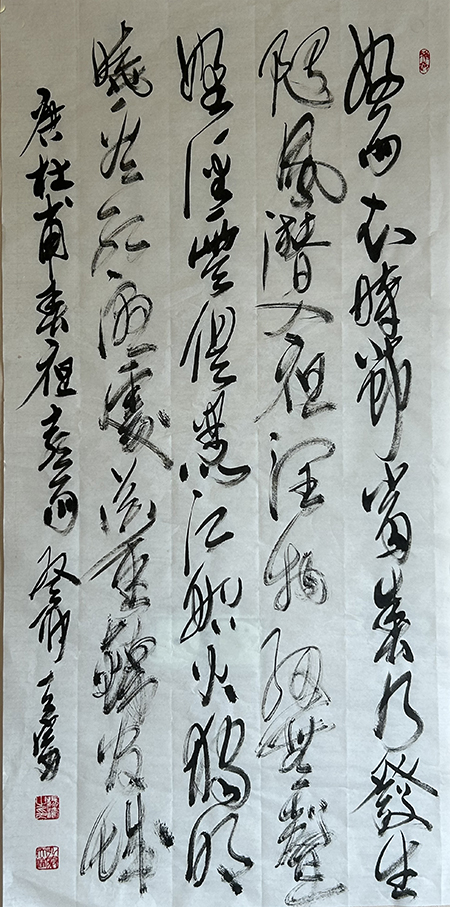 好雨知時節當春乃發生
隨風潛入夜潤物細無聲
野徑雲俱黑江船火獨明
曉看紅濕處花重錦官城
唐杜甫春夜喜雨 癸卯